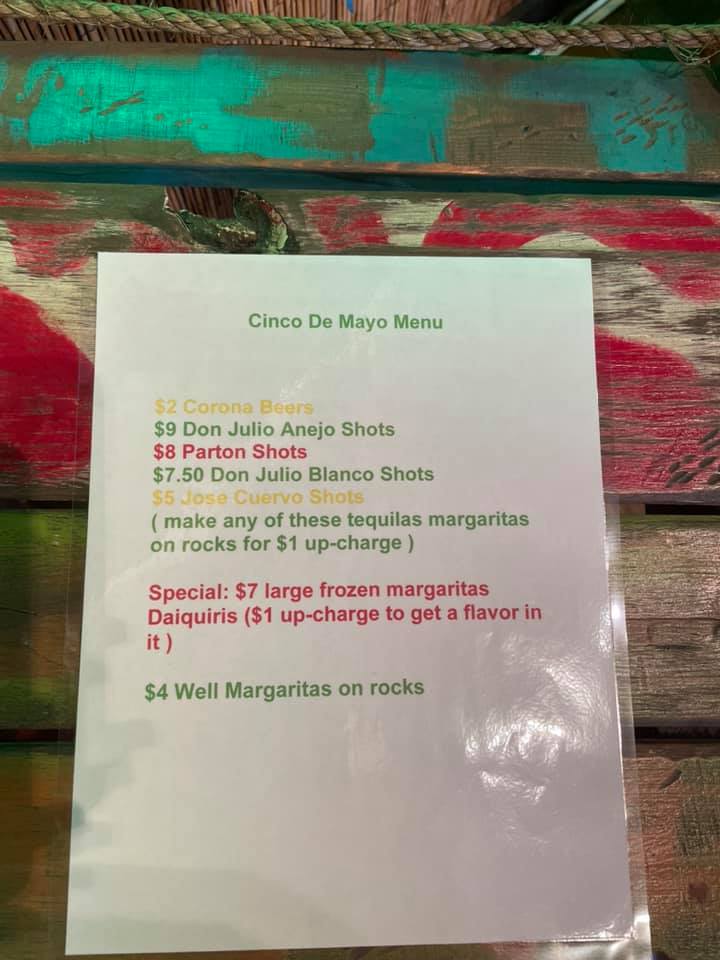 Cinco De Mayo Menu
$2 Corona Beers
$9 Don Julio Anejo Shots
$8 Parton Shots
$7.50 Don Julio Blanco Shots
$5 Jose Cuervo Shots
( make any of these tequilas margaritas
on rocks for $1 up-charge )
Special: $7 large frozen margaritas
Daiquiris ($1 up-charge to get a flavor in
it )
$4 Well Margaritas on rocks